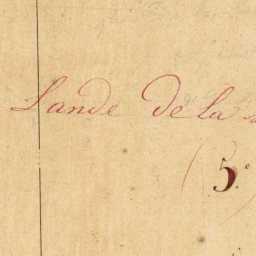 Lande De la
(5.e